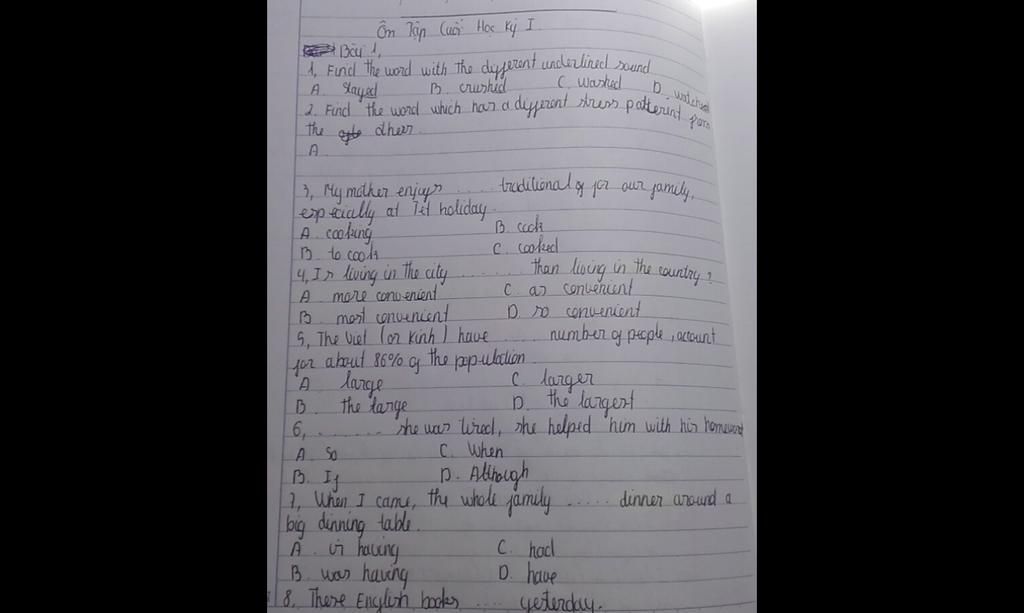 Ôn Tập Cuối Học Kỳ I
Bài 1,
1, Find the word with the different underlined sound
A. stayed B. crushed C. washed D. watched
2. Find the word which has a different stress patterint from
the other
A
3, My mother enjoys ..... traditional of for our family,
especially at Tet holiday.
A. cooking B. cook
B. to cook C. cooked
4, Is living in the city ......... than living in the country?
A more convenient C. as convenient
B. most convenient D. so convenient
5, The Viet (or Kinh) have ...... number of people, account
for about 86% of the population
A large C. larger
B. the large D. the largest
6, ......... she was tired, she helped him with his homework
A. So C. When
B. If D. Although
7, When I came, the whole family ..... dinner around a
big dinning table.
A. is having C. had
B. was having D. have
8, These English books .... yesterday.